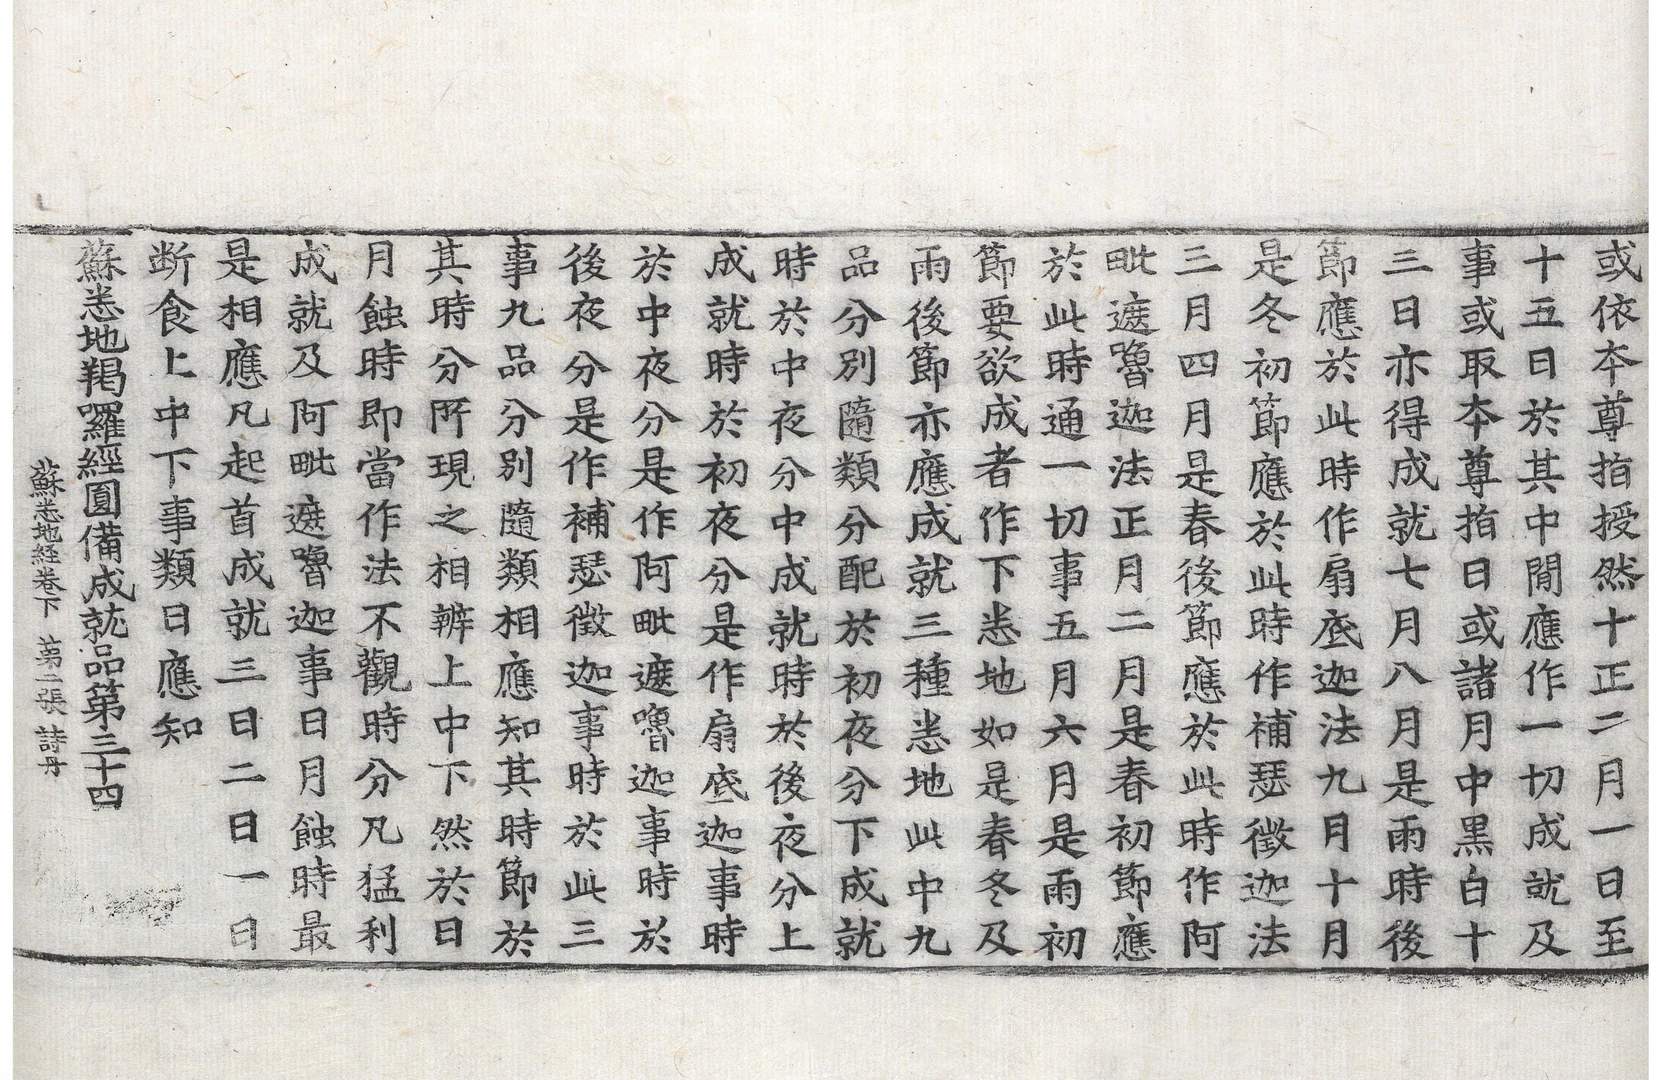 或依本尊指授然十正二月一日至
十五日於其中間應作一切成就及
事或取本尊指日或諸月中黑白十
三日亦得成就七月八月是雨時後
節應於此時作扇底迦法九月十月
是冬初節應於此時作補瑟徵迦法
三月四月是春後節應於此時作阿
毗遮嚕迦法正月二月是春初節應
於此時通一切事五月六月是雨初
節要欲成者作下悉地如是春冬及
雨後節亦應成就三種悉地此中九
品分別隨類分配於初夜分下成就
時於中夜分中成就時於後夜分上
成就時於初夜分是作扇底迦事時
於中夜分是作阿毗遮嚕迦事時於
後夜分是作補瑟徵迦事時於此三
事九品分別隨類相應知其時節於
其時分所現之相辨上中下然於日
月蝕時即當作法不觀時分凡猛利
成就及阿毗遮嚕迦事日月蝕時最
是相應凡起首成就三日二日一日
断食上中下事類日應知
蘇悉地羯囉經圓備成就品第三十四
蘇悉地經卷下 第二張 詩丹